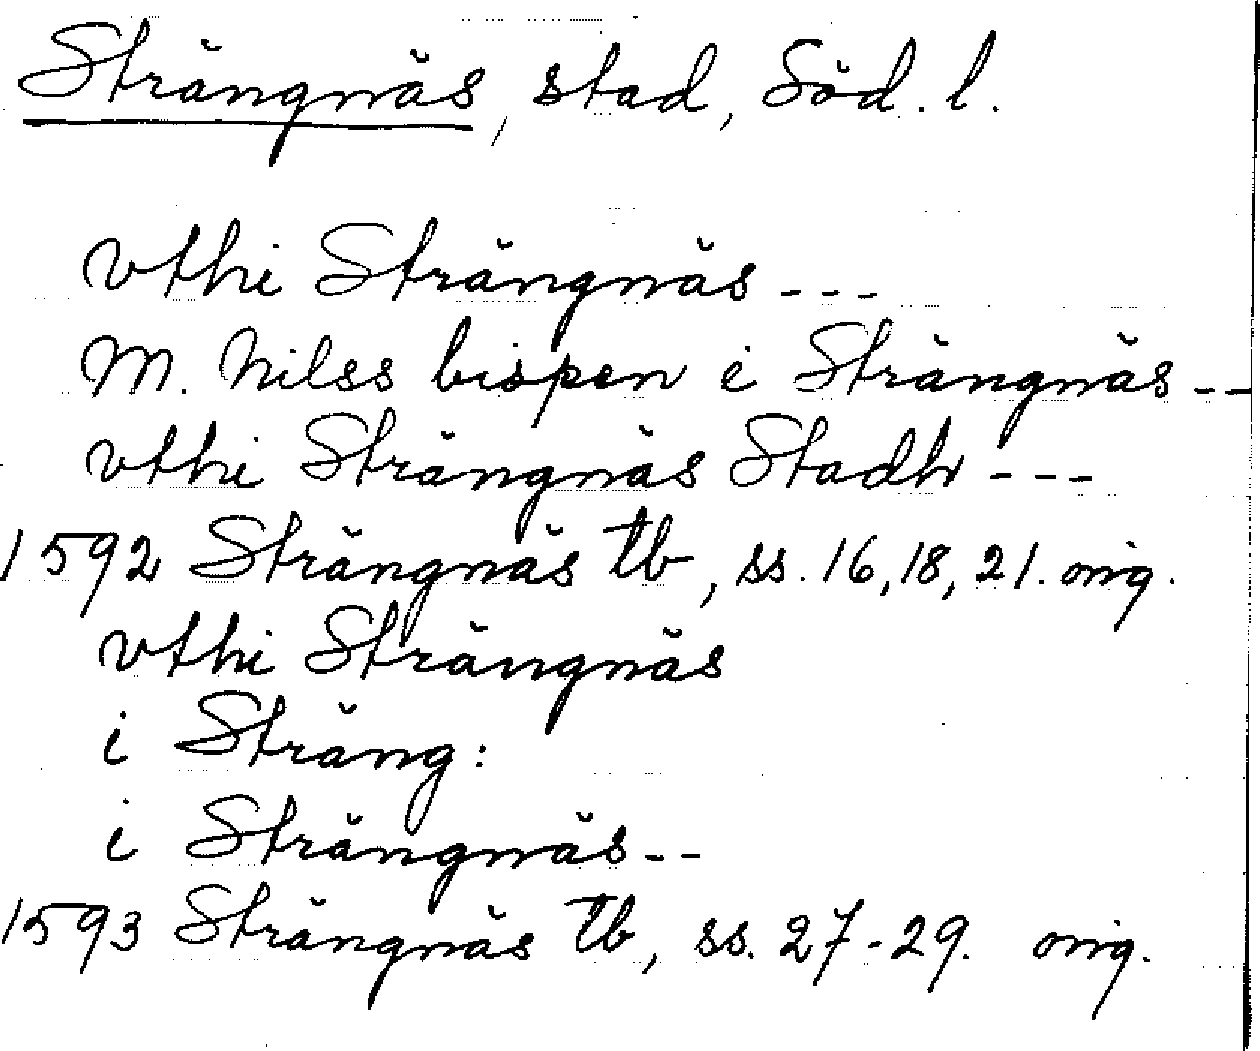 Strängnäs, stad, Söd. l.
vthi Strängnäs ---
M. Nilss bispen i Strängnäs --
vthi Strängnäs Stadh ---
1592 Strängnäs tb, ss. 16, 18, 21. orig.
vthi Strängnäs
i Sträng:
i Strängnäs --
1593 Strängnäs tb, ss. 27-29. orig.